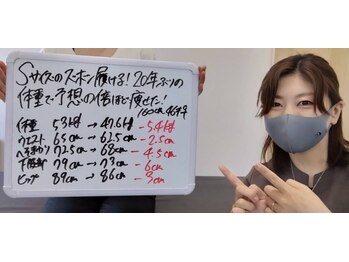 Sサイズのズボン履ける！20年ぶりの
体重で予想の倍ほど痩せた！
160cm 46才
体重 53kg → 47.6kg -5.4kg
ウエスト 65cm → 62.5cm -2.5cm
72.5cm → 68cm -4.5cm
下腹部 79cm → 73cm -6cm
ヒップ 89cm → 86cm -3cm